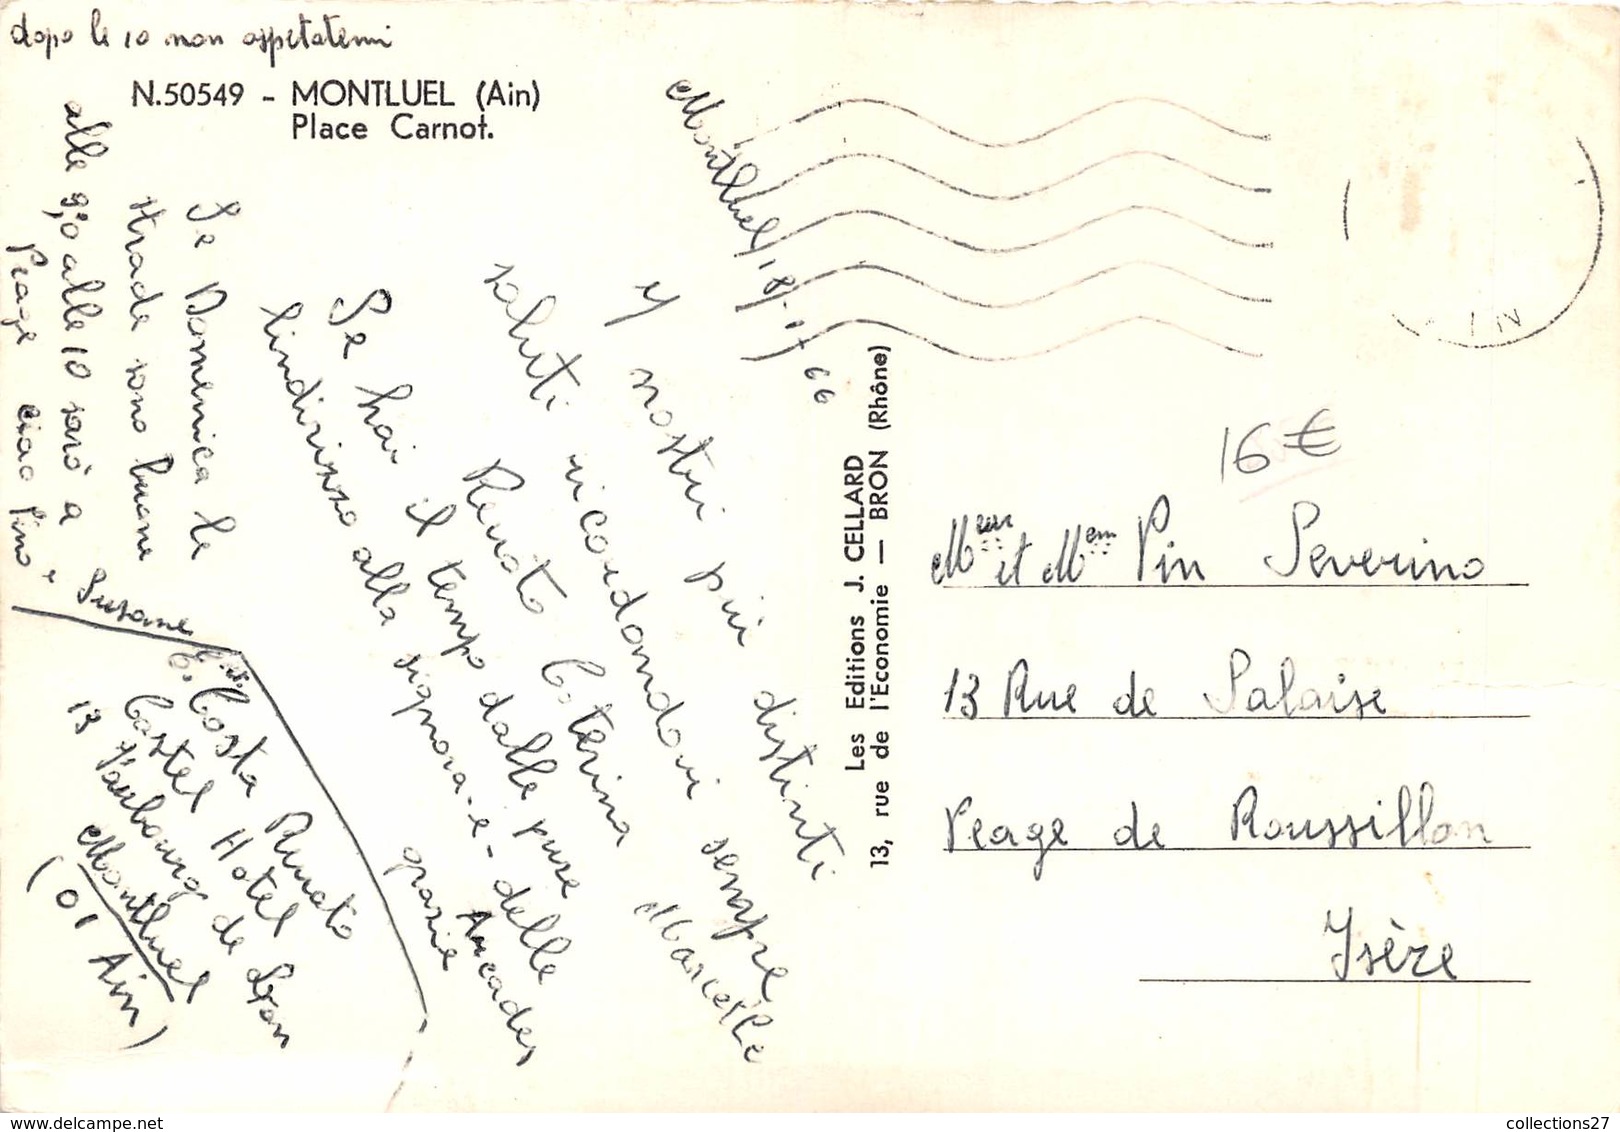 dopo le 10 non aspetatemi
N.50549 - MONTLUEL (Ain)
Place Carnot.
Montluel 18-1-66
I nostri più distinti
saluti ricordandovi sempre
Renato Caterina Marcelle
Se hai il tempo dalle pure
lindirisso alla signora e delle Arcades
grasie
Se Domenica le
strade sono buone
alle 9,0 alle 10 sarò a
Peage ciao Pino e Susane
Costa Renato
Castel Hotel
13 Faubourg de Lyon
Montluel
(01 Ain)
Les Editions J. CELLARD
13, rue de l'Economie — BRON (Rhône)
AIN
16 €
Meur et Mem Pin Severino
13 Rue de Salaise
Peage de Roussillon
Isère
collections27